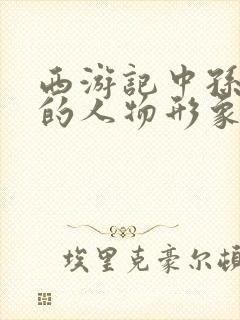 西游记中孙
的人物形象
埃里克豪尔顿